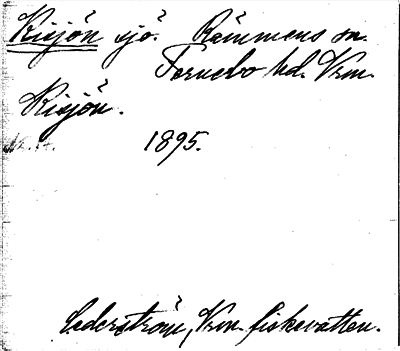 Kisjön sjö. Rämmens sn.
Fernebo hd. Vrm.
Kisjön.
1895.
Cederström, Vrm. fiskevatten.